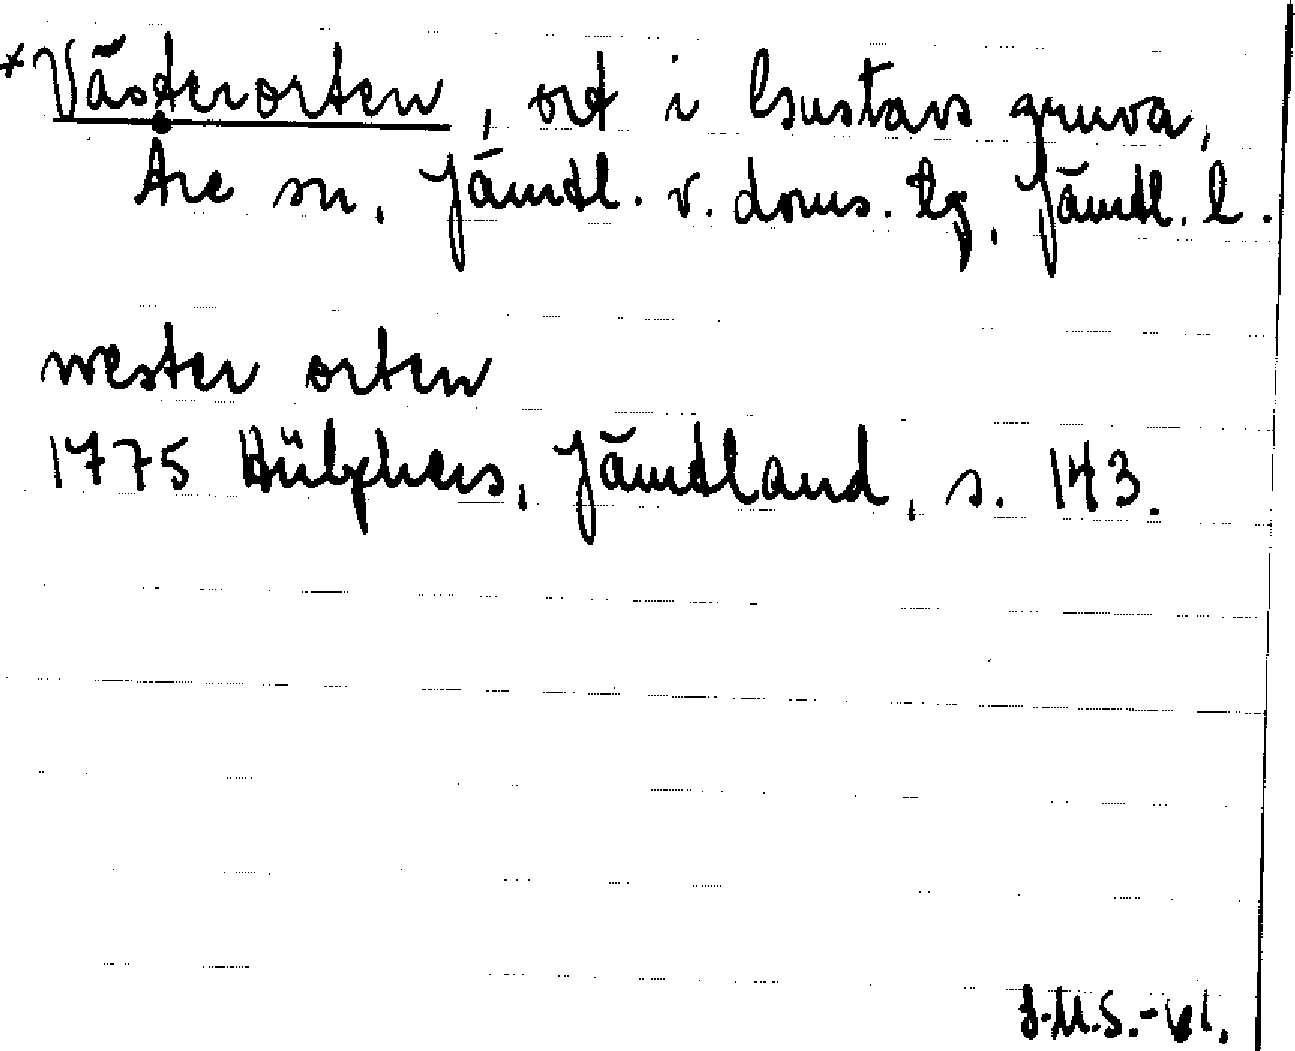 *Västerorten, ort i Gustavs gruva,
Åre sn, Jämtl. v. doms. tg, Jämtl. l.
wester orten
1775 Hülphers, Jämtland, s. 143.